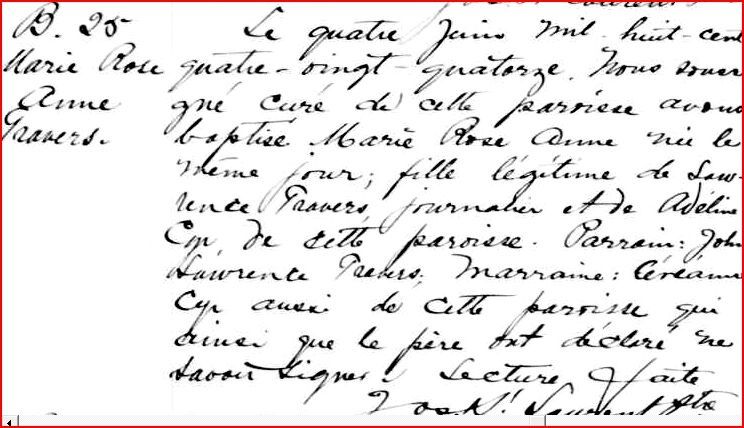 B. 25
Marie Rose
Anne
Travers.
Le quatre Juin mil-huit-cent
quatre-vingt-quatorze, Nous sous
gné curé de cette paroisse avons
baptisé Marie Rose Anne née le
même jour, fille légitime de Law-
rence Travers, journalier et de Adéline
Cyr de cette paroisse. Parrain: John
Lawrence Travers, Marraine:
Cyr aussi de cette paroisse qui
ainsi que le père ont déclaré ne
savoir signer. Lecture faite
Jos. St Laurent Ptre